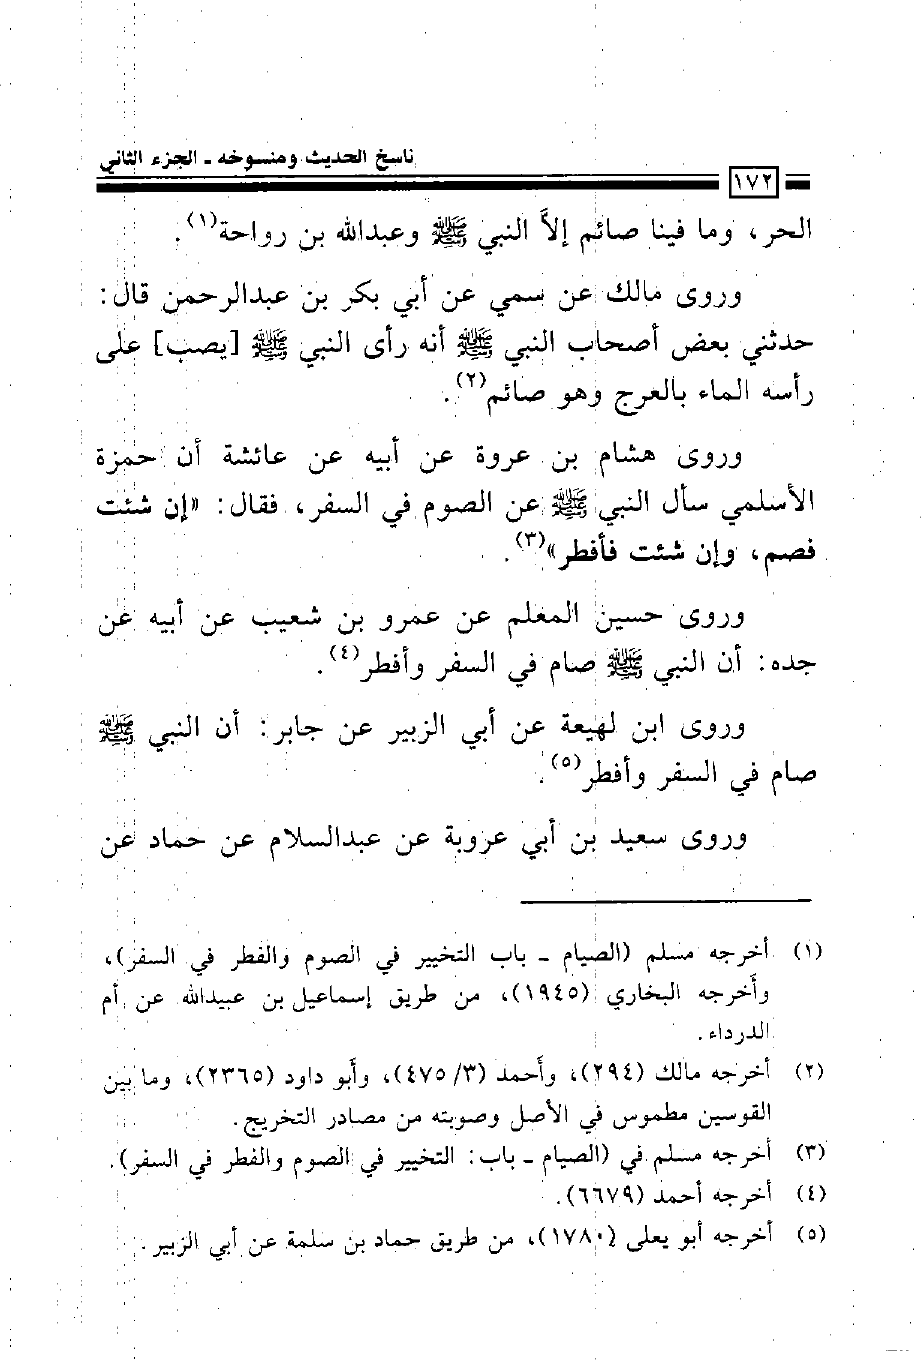 ناسخ الحديث ومنسوخه ـ الجزء الثاني
١٧٢
الحر، وما فينا صائم إلاَّ النبي ﷺ وعبدالله بن رواحة(١).
وروى مالك عن سمي عن أبي بكر بن عبدالرحمن قال:
حدثني بعض أصحاب النبي ﷺ أنه رأى النبي ﷺ [يصب] على
رأسه الماء بالعرج وهو صائم(٢).
وروى هشام بن عروة عن أبيه عن عائشة أن حمزة
الأسلمي سأل النبي ﷺ عن الصوم في السفر، فقال: «إن شئت
فصم، وإن شئت فأفطر»(٣).
وروى حسين المعلم عن عمرو بن شعيب عن أبيه عن
جده: أن النبي ﷺ صام في السفر وأفطر(٤).
وروى ابن لهيعة عن أبي الزبير عن جابر: أن النبي ﷺ
صام في السفر وأفطر(٥).
وروى سعيد بن أبي عروبة عن عبدالسلام عن حماد عن
(١) أخرجه مسلم (الصيام ـ باب التخيير في الصوم والفطر في السفر)،
وأخرجه البخاري (١٩٤٥)، من طريق إسماعيل بن عبيدالله عن أم
الدرداء.
(٢) أخرجه مالك (٢٩٤)، وأحمد (٤٧٥/٣)، وأبو داود (٢٣٦٥)، وما بين
القوسين مطموس في الأصل وصوبته من مصادر التخريج.
(٣) أخرجه مسلم في (الصيام ـ باب: التخيير في الصوم والفطر في السفر).
(٤) أخرجه أحمد (٦٦٧٩).
(٥) أخرجه أبو يعلى (١٧٨٠)، من طريق حماد بن سلمة عن أبي الزبير.